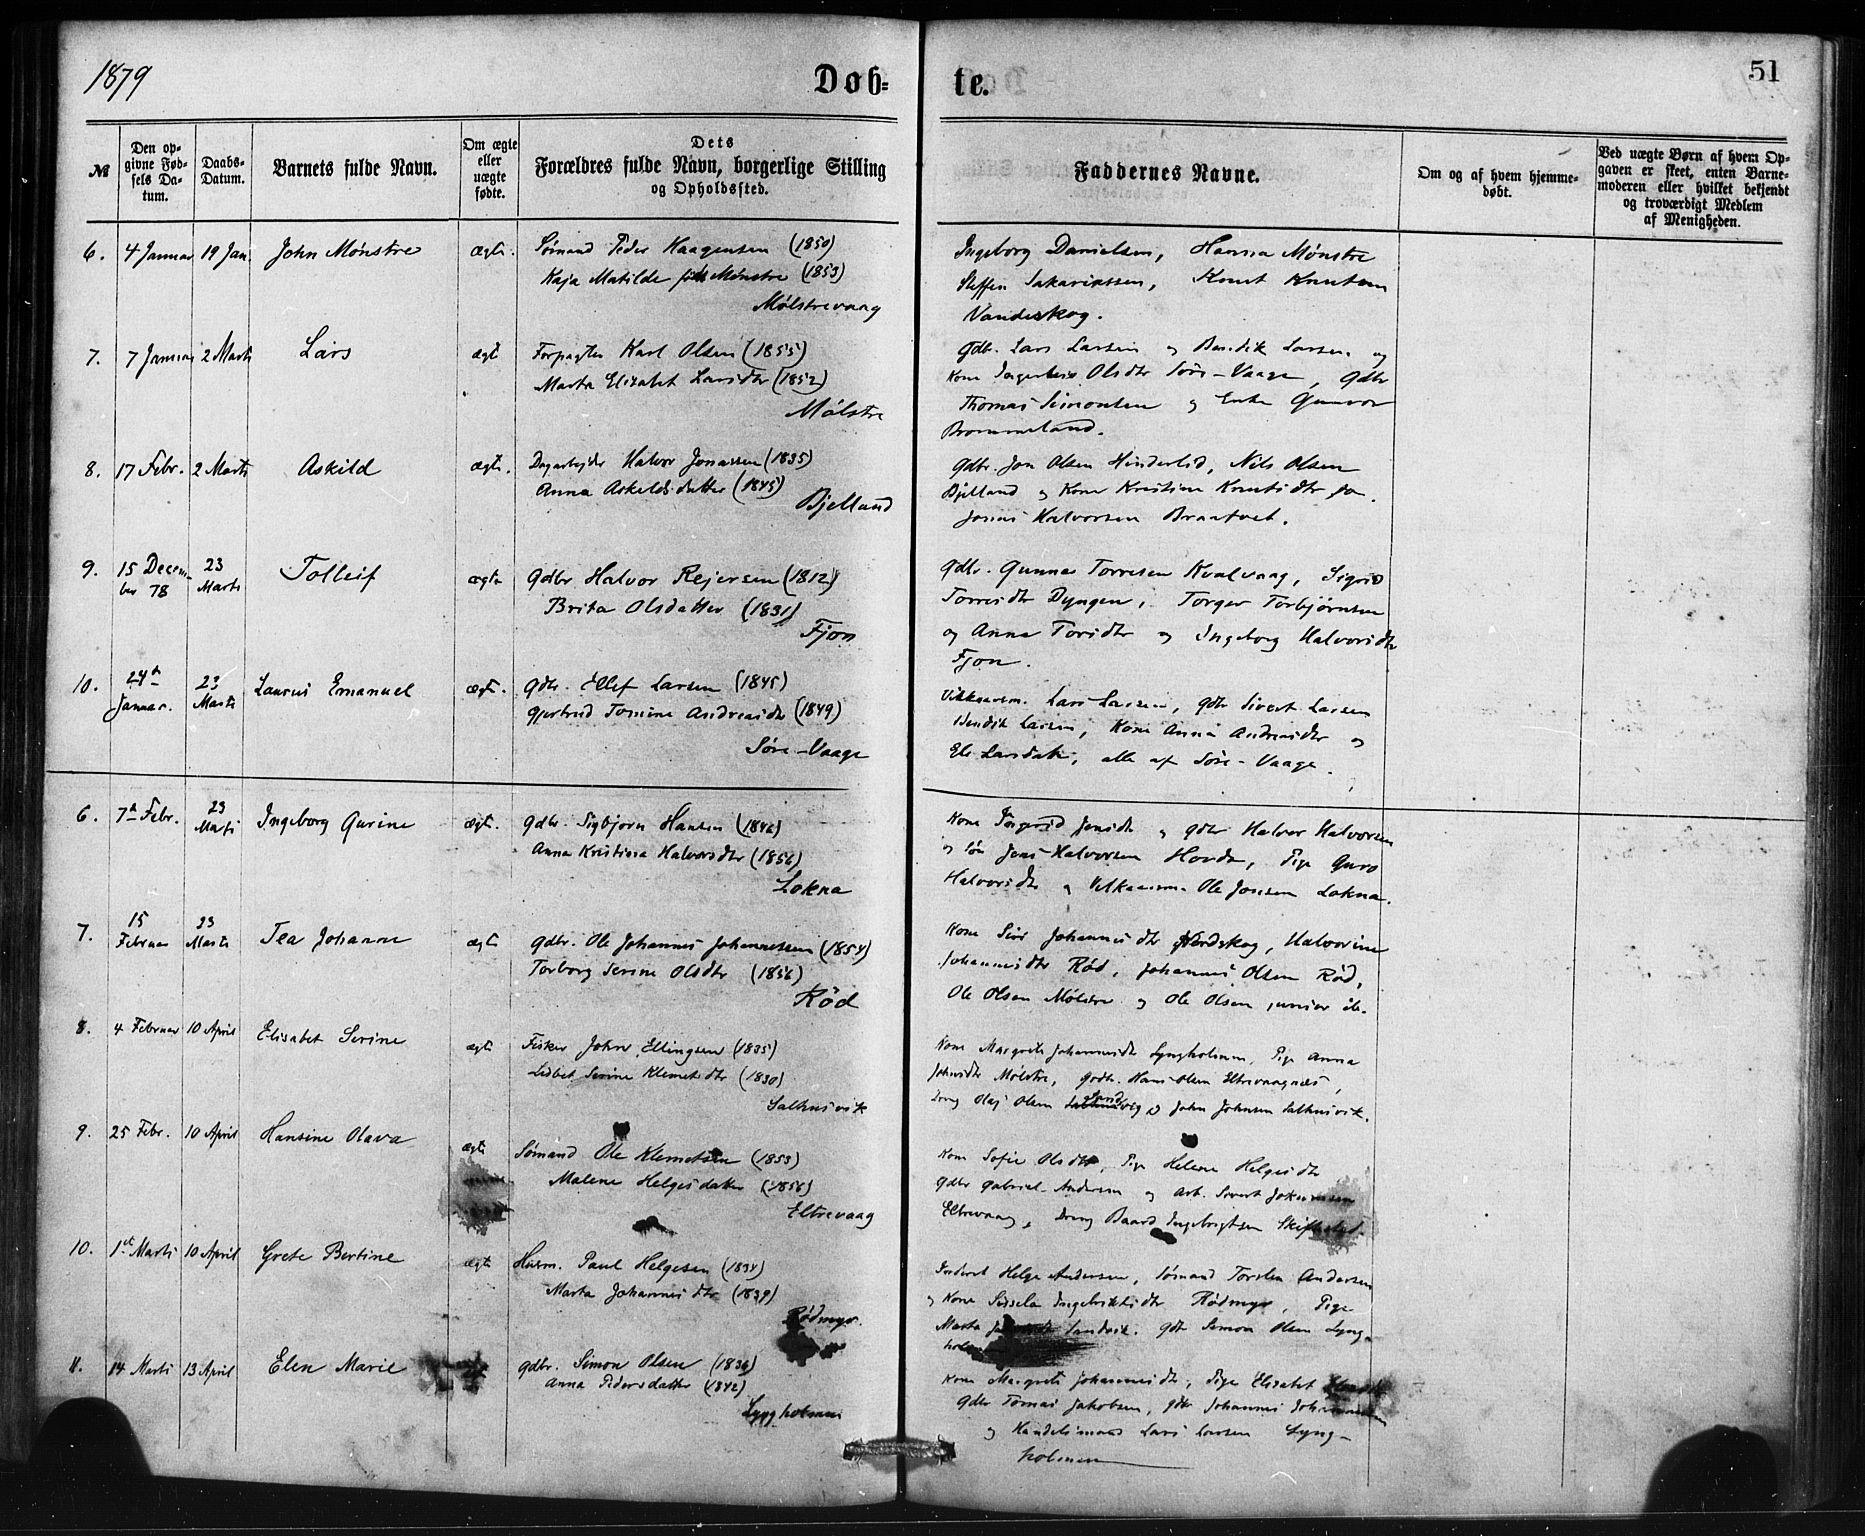 1879
Døb-
te.
51
№
Den op-
givne Fød-
sels Da-
tum.
Daabs-
Datum.
Barnets fulde Navn.
Om ægte
eller
uægte
fødte.
Dets
Forældres fulde Navn, borgerlige Stilling
og Opholdssted.
Faddernes Navne.
Om og af hvem hjemme-
døbt.
Ved uægte Børn af hvem Op-
gaven er skeet, enten Barne-
moderen eller hvilket bekjendt
og troværdigt Medlem
af Menigheden.
6. 4 Januar 19 Jan. John Mønstre ægte. Sømand Peder Haagensen (1850)
Kaja Matilde født Mønstre (1853)
Mølstrevaag
Ingeborg Danielsen, Hanna Mønstre
Steffen Sakariassen, Knut Knutsen
Vandeskog.
7. 7 Januar 2 Marts Lars ægte Forpagter Karl Olsen (1855)
Marta Elisabet Larsdtr (1852)
Mølstre
Gdbr. Lars Larsen og Bendik Larsen og
Kone Olsdtr Søre-Vaage, Gdbr
Thomas Simonsen og Enke Gunvor
Brommeland.
8. 17 Febr. 2 Marts Askild ægte. Dagarbejder Halvor Jonassen (1835)
Anna Askeldsdatter (1845)
Bjelland
Gdbr. Jon Olsen Hinderlid, Nils Olsen
Bjelland og Kone Kristine Knutsdtr
Jonas Halvorsen Braatvet.
9. 15 Decem-
ber 78 23
Marts Tolleif ægte Gdbr Halvor Rejersen (1812)
Brita Olsdatter (1831)
Fjon
Gdbr. Gunnar Torresen Kvalvaag, Sigrid
Torresdtr Dyngen, Torger Torbjørnsen
og Anna Toresdtr og Ingeborg Halvorsdtr
Fjon.
10. 24de
Januar. 23
Marts Laurus Emanuel ægte. Gdbr. Ellef Larsen (1845)
Gjertrud Tomine Andreasdtr (1849)
Søre-Vaage
Lars Larsen, Gdbr Sivert Larsen
Bendik Larsen, Kone Anna Andreasdtr og
Eli Larsdatter, alle af Søre-Vaage.
6. 7de Febr. 23
Marts Ingeborg Gurine ægte. Gdbr. Sigbjørn Hansen (1846)
Anna Kristina Halvorsdtr (1856)
Lokna
Kone Jensdtr og Gdbr Halvor Halvorsen
og Søn Jens Halvorsen Hovda, Pige Guro
Halvorsdtr og Ole Jonsen Lokna.
7. 15
Februar 23
Marts Tea Johanne ægte Gdbr. Ole Johannes Johannessen (1854)
Torborg Serine Olsdtr (1856)
Rød
Kone Siri Johannesdtr Nordskog, Halvorine
Johannesdtr Rød, Johannes Olsen Rød,
Ole Olsen Mølstre og Ole Olsen junior ib.
8. 4 Februar 10 April Elisabet Serine ægte Fisker John Ellingsen (1835)
Lisbet Serine Klemetsdtr (1830)
Salhusvik
Kone Margrete Johannesdtr Lyngholmen, Pige Anna
Johnsdtr Mølstre, Gdbr. Hans Olsen Eltrevaagnæs,
Dreng Olaj Olsen Sand og John Johnsen Salhusvik.
9. 25 Febr. 10 April Hansine Olava ægte Sømand Ole Klemetsen (1853)
Malene Helgesdatter (1856)
Eltrevaag
Kone Sofie Olsdtr, Pige Helene Helgesdtr
Gdbr Gabriel Andersen og Arb. Sivert Johannessen
Eltrevaag, Dreng Baard Ingebrigtsen
10. 1ste Marts 10 April Grete Bertine ægte Husm. Paul Helgesen (1834)
Marta Johannesdtr (1839)
Rødmyr.
Helge Andersen, Sømand Torsten Andersen
og Kone Sissela Ingebriktsdtr Rødmyr, Pige
Marta Sandvik. Gdbr Simon Olsen Lyng-
holmen
11. 14 Marts 13 April Elen Marie Gdbr. Simon Olsen (1836)
Anna Pedersdatter (1842)
Lyngholmen
Kone Margrete Johannesdtr, Pige Elisabet
Gdbr Tomas Jakobsen, Gdbr Johannes Johannessen
og Handelsmand Lars Larsen Lyng-
holmen